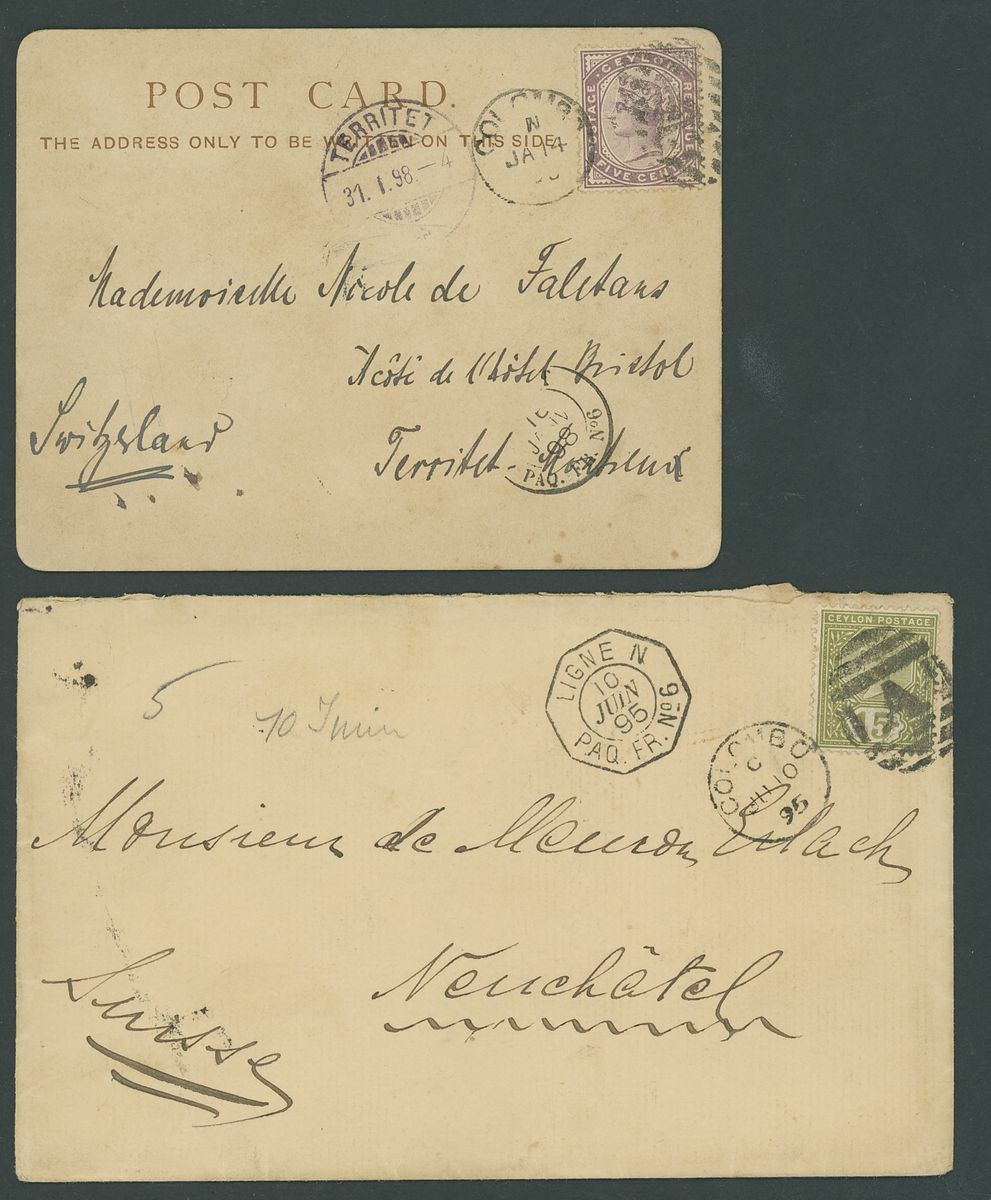 POST CARD.
THE ADDRESS ONLY TO BE WRITTEN ON THIS SIDE.
TERRITET
31.1.98.-4
COLOMBO
N
JA 14
CEYLON
POSTAGE REVENUE
FIVE CENTS
Mademoiselle Nicole de Faletans
À côté de l'hôtel Bristol
Switzerland
Territet-Montreux
JANV
98
PAQ. FR. Nº 9
CEYLON POSTAGE
15
A
LIGNE N
10
JUIN
95
PAQ. FR. Nº 9
COLOMBO
C
JU 10
95
5
10 Juin
Monsieur de Meuron Erlach
Neuchâtel
Suisse